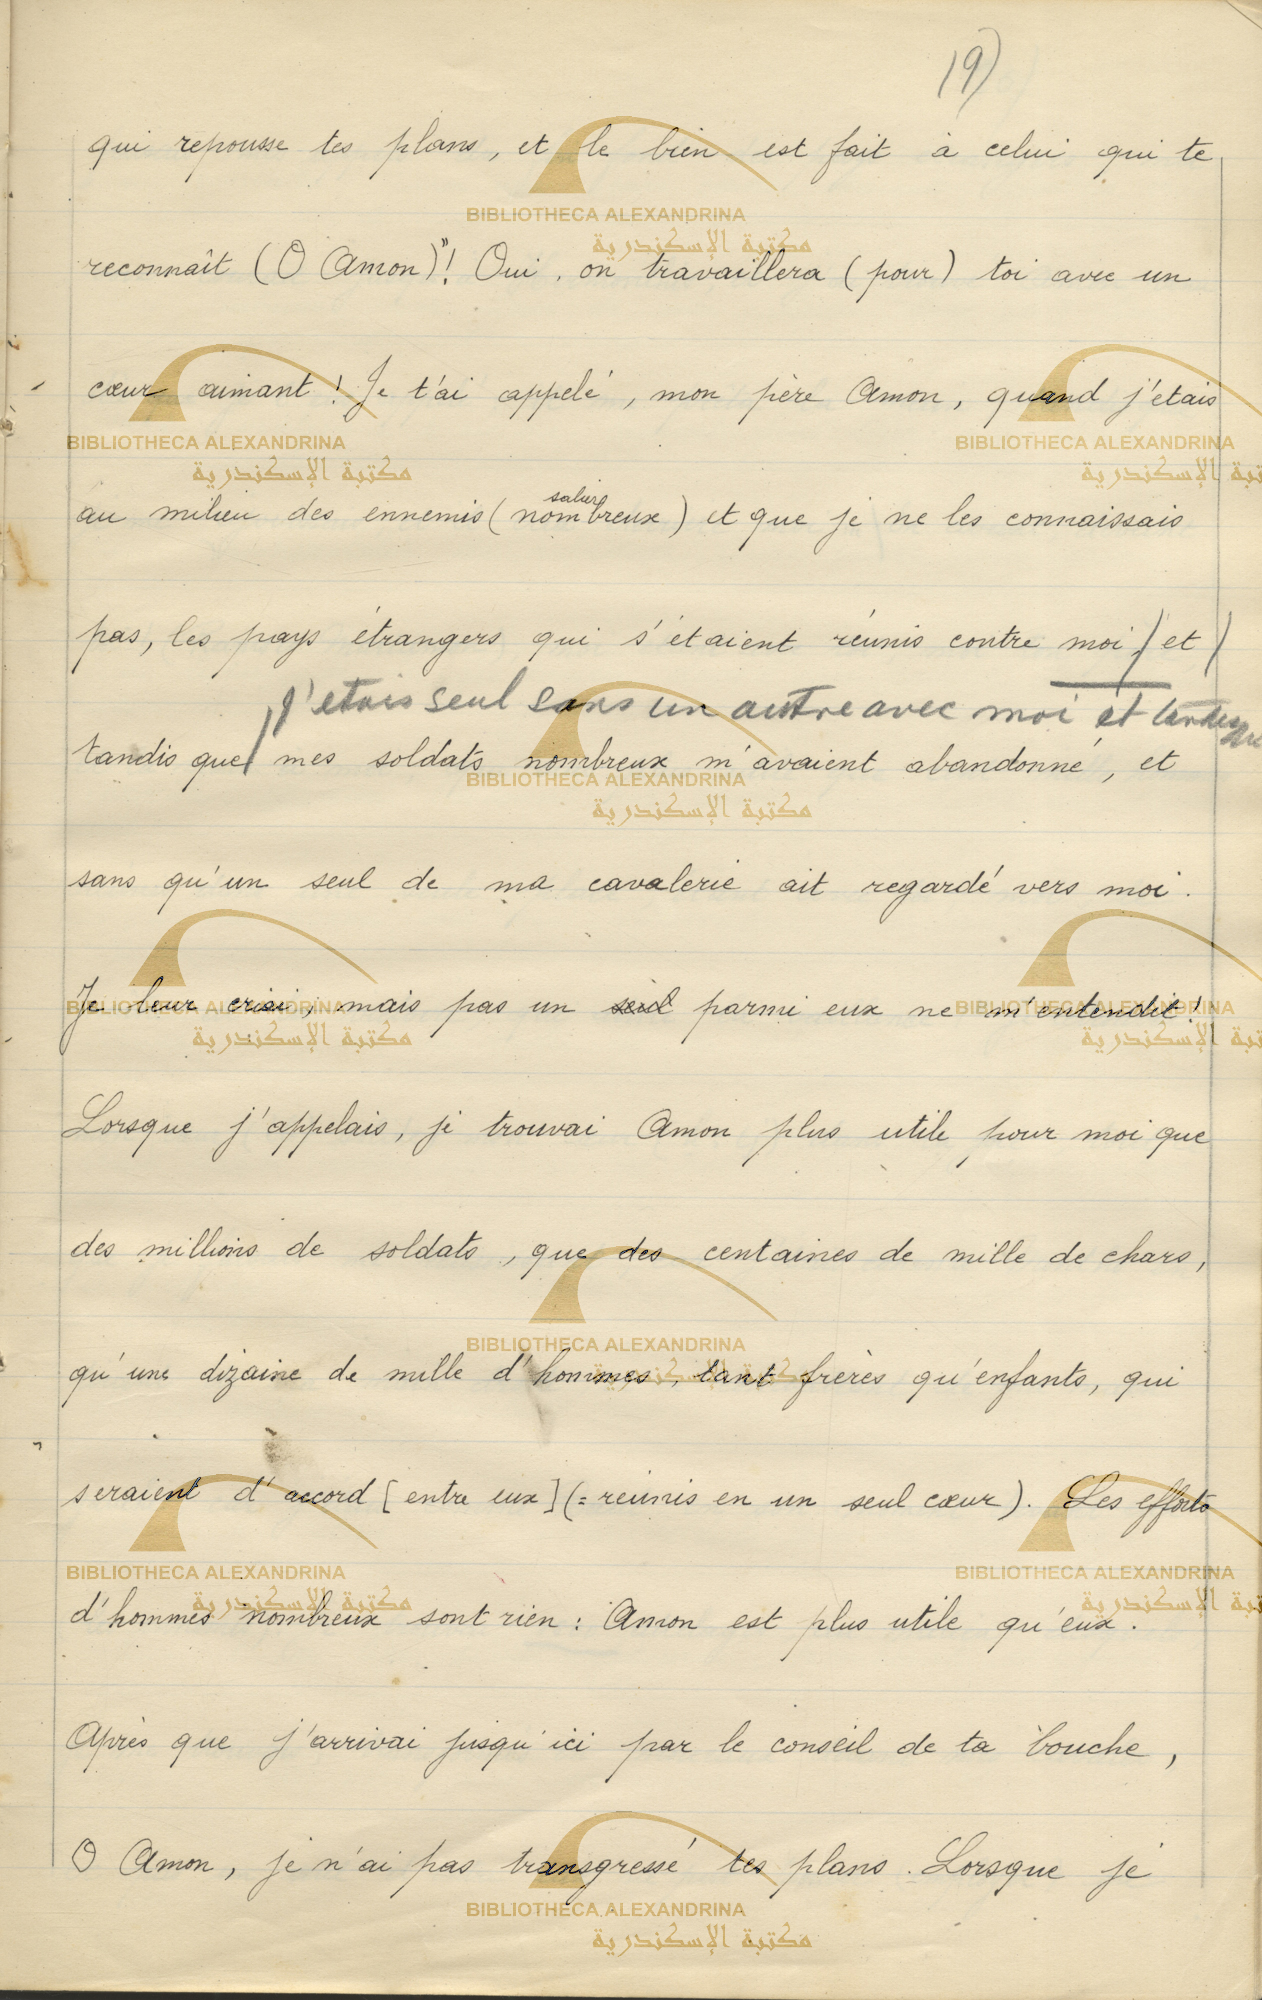 19)
qui repousse tes plans, et le bien est fait à celui qui te
reconnaît (O Amon)"! Oui, on travaillera (pour) toi avec un
cœur aimant ! Je t'ai appelé, mon père Amon, quand j'étais
au milieu des ennemis (nombreux) et que je ne les connaissais
pas, les pays étrangers qui s'étaient réunis contre moi, ) et )
j'etais seul sans un autre avec moi et tandis que
tandis que mes soldats nombreux m'avaient abandonné, et
sans qu'un seul de ma cavalerie ait regardé vers moi.
Je leur criai, mais pas un seul parmi eux ne m'entendit !
Lorsque j'appelais, je trouvai Amon plus utile pour moi que
des millions de soldats, que des centaines de mille de chars,
qu'une dizaine de mille d'hommes, tant frères qu'enfants, qui
seraient d'accord [entre eux] (= réunis en un seul cœur). Les efforts
d'hommes nombreux sont rien : Amon est plus utile qu'eux.
Après que j'arrivai jusqu'ici par le conseil de ta bouche,
O Amon, je n'ai pas transgressé tes plans. Lorsque je
BIBLIOTHECA ALEXANDRINA
مكتبة الإسكندرية